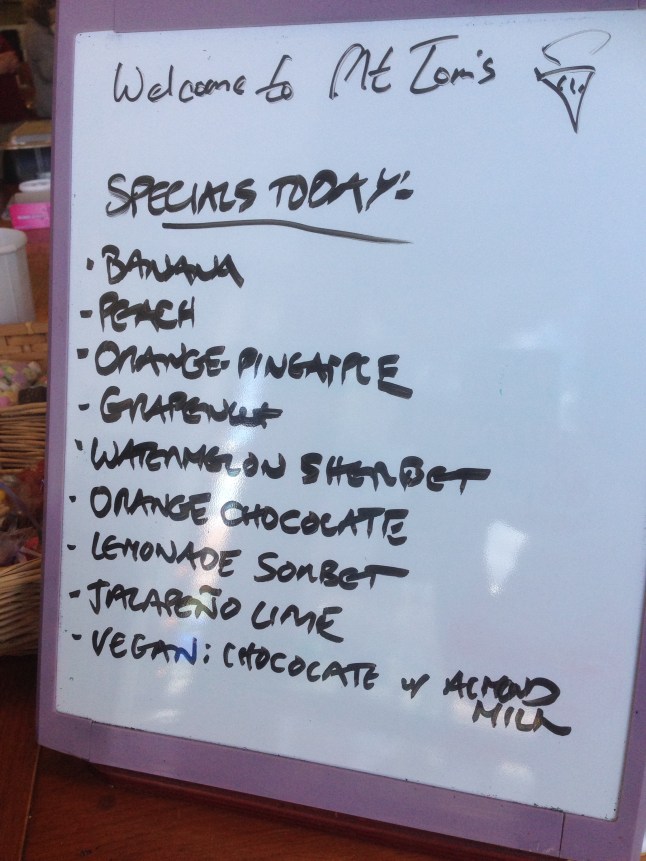 Welcome to Mt Tom's
SPECIALS TODAY:
· BANANA
- PEACH
· ORANGE-PINEAPPLE
- GRAPENUT
· WATERMELON SHERBET
- ORANGE CHOCOLATE
- LEMONADE SORBET
- JALAPEÑO LIME
- VEGAN: CHOCOLATE w/ ALMOND
MILK